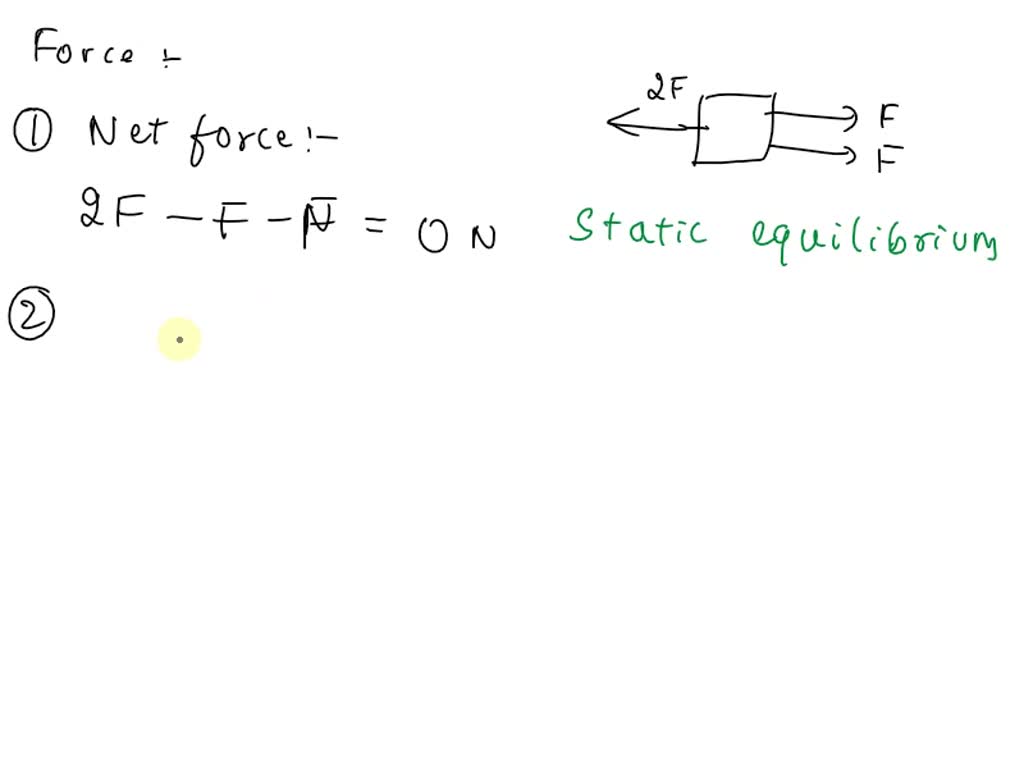 Force :-
① Net force :-
2F
F
F
2F - F - F = 0 N
Static equilibrium
②